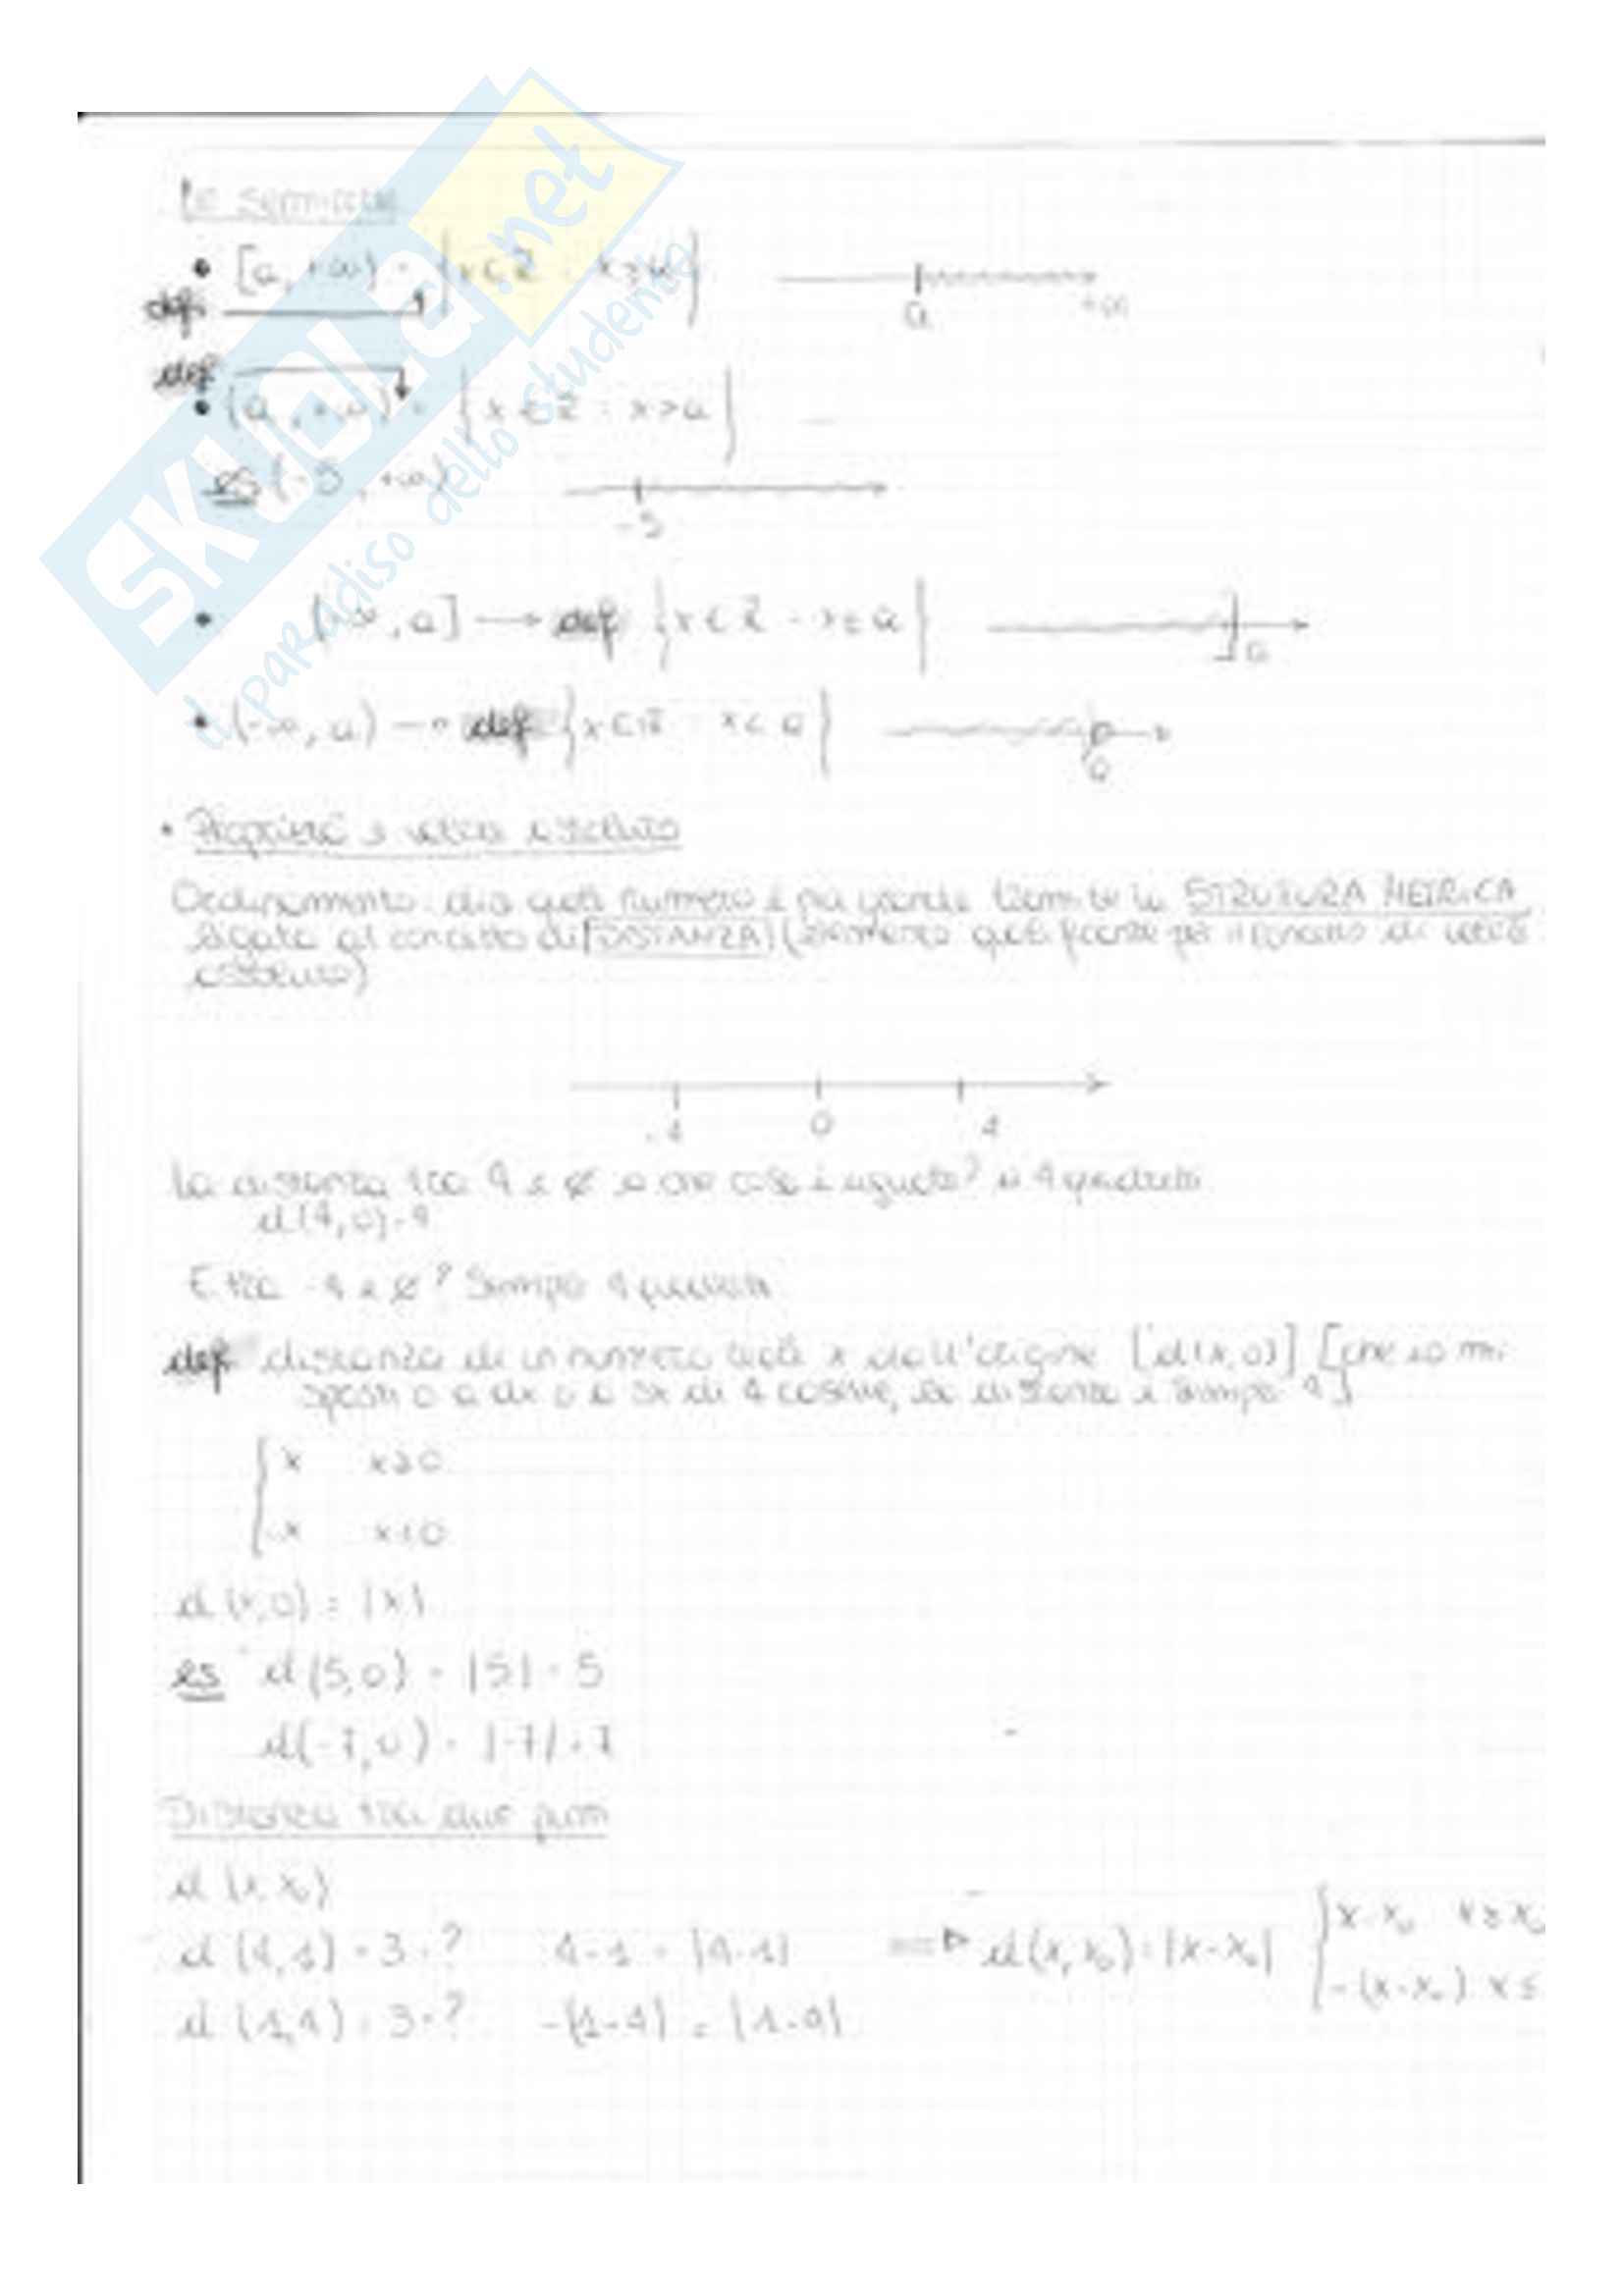 Le semirette
• [a, +∞) = {x ∈ R : x ≥ a}
a +∞
def:
def
• (a, +∞) = {x ∈ R : x > a}
es (-5, +∞)
-5
• (-∞, a] → def {x ∈ R : x ≤ a}
a
• (-∞, a) → def {x ∈ R : x < a}
a
• Proprietà e valore assoluto
Ordinamento: dice quale numero è più grande tramite la STRUTTURA METRICA
legata al concetto di DISTANZA (elemento qualificante per il concetto di valore
assoluto)
-4 0 4
La distanza tra 4 e 0 a che cosa è uguale? a 4 quadretti
d(4,0) = 4
E tra -4 e 0? Sempre 4 quadretti
def distanza di un numero reale x dall'origine [d(x,0)] [che io mi
sposti o a dx o a sx di 4 caselle, la distanza è sempre 4]
{ x x ≥ 0
-x x < 0
d(x,0) = |x|
es d(5,0) = |5| = 5
d(-7,0) = |-7| = 7
Distanza tra due punti
d(x,x₀)
d(4,1) = 3 = ? 4-1 = |4-1| ⇒ d(x,x₀) = |x-x₀| { x-x₀ x ≥ x₀
d(1,4) = 3 = ? -(1-4) = |1-4| -(x-x₀) x ≤
SKUOLA.net
il paradiso dello studente